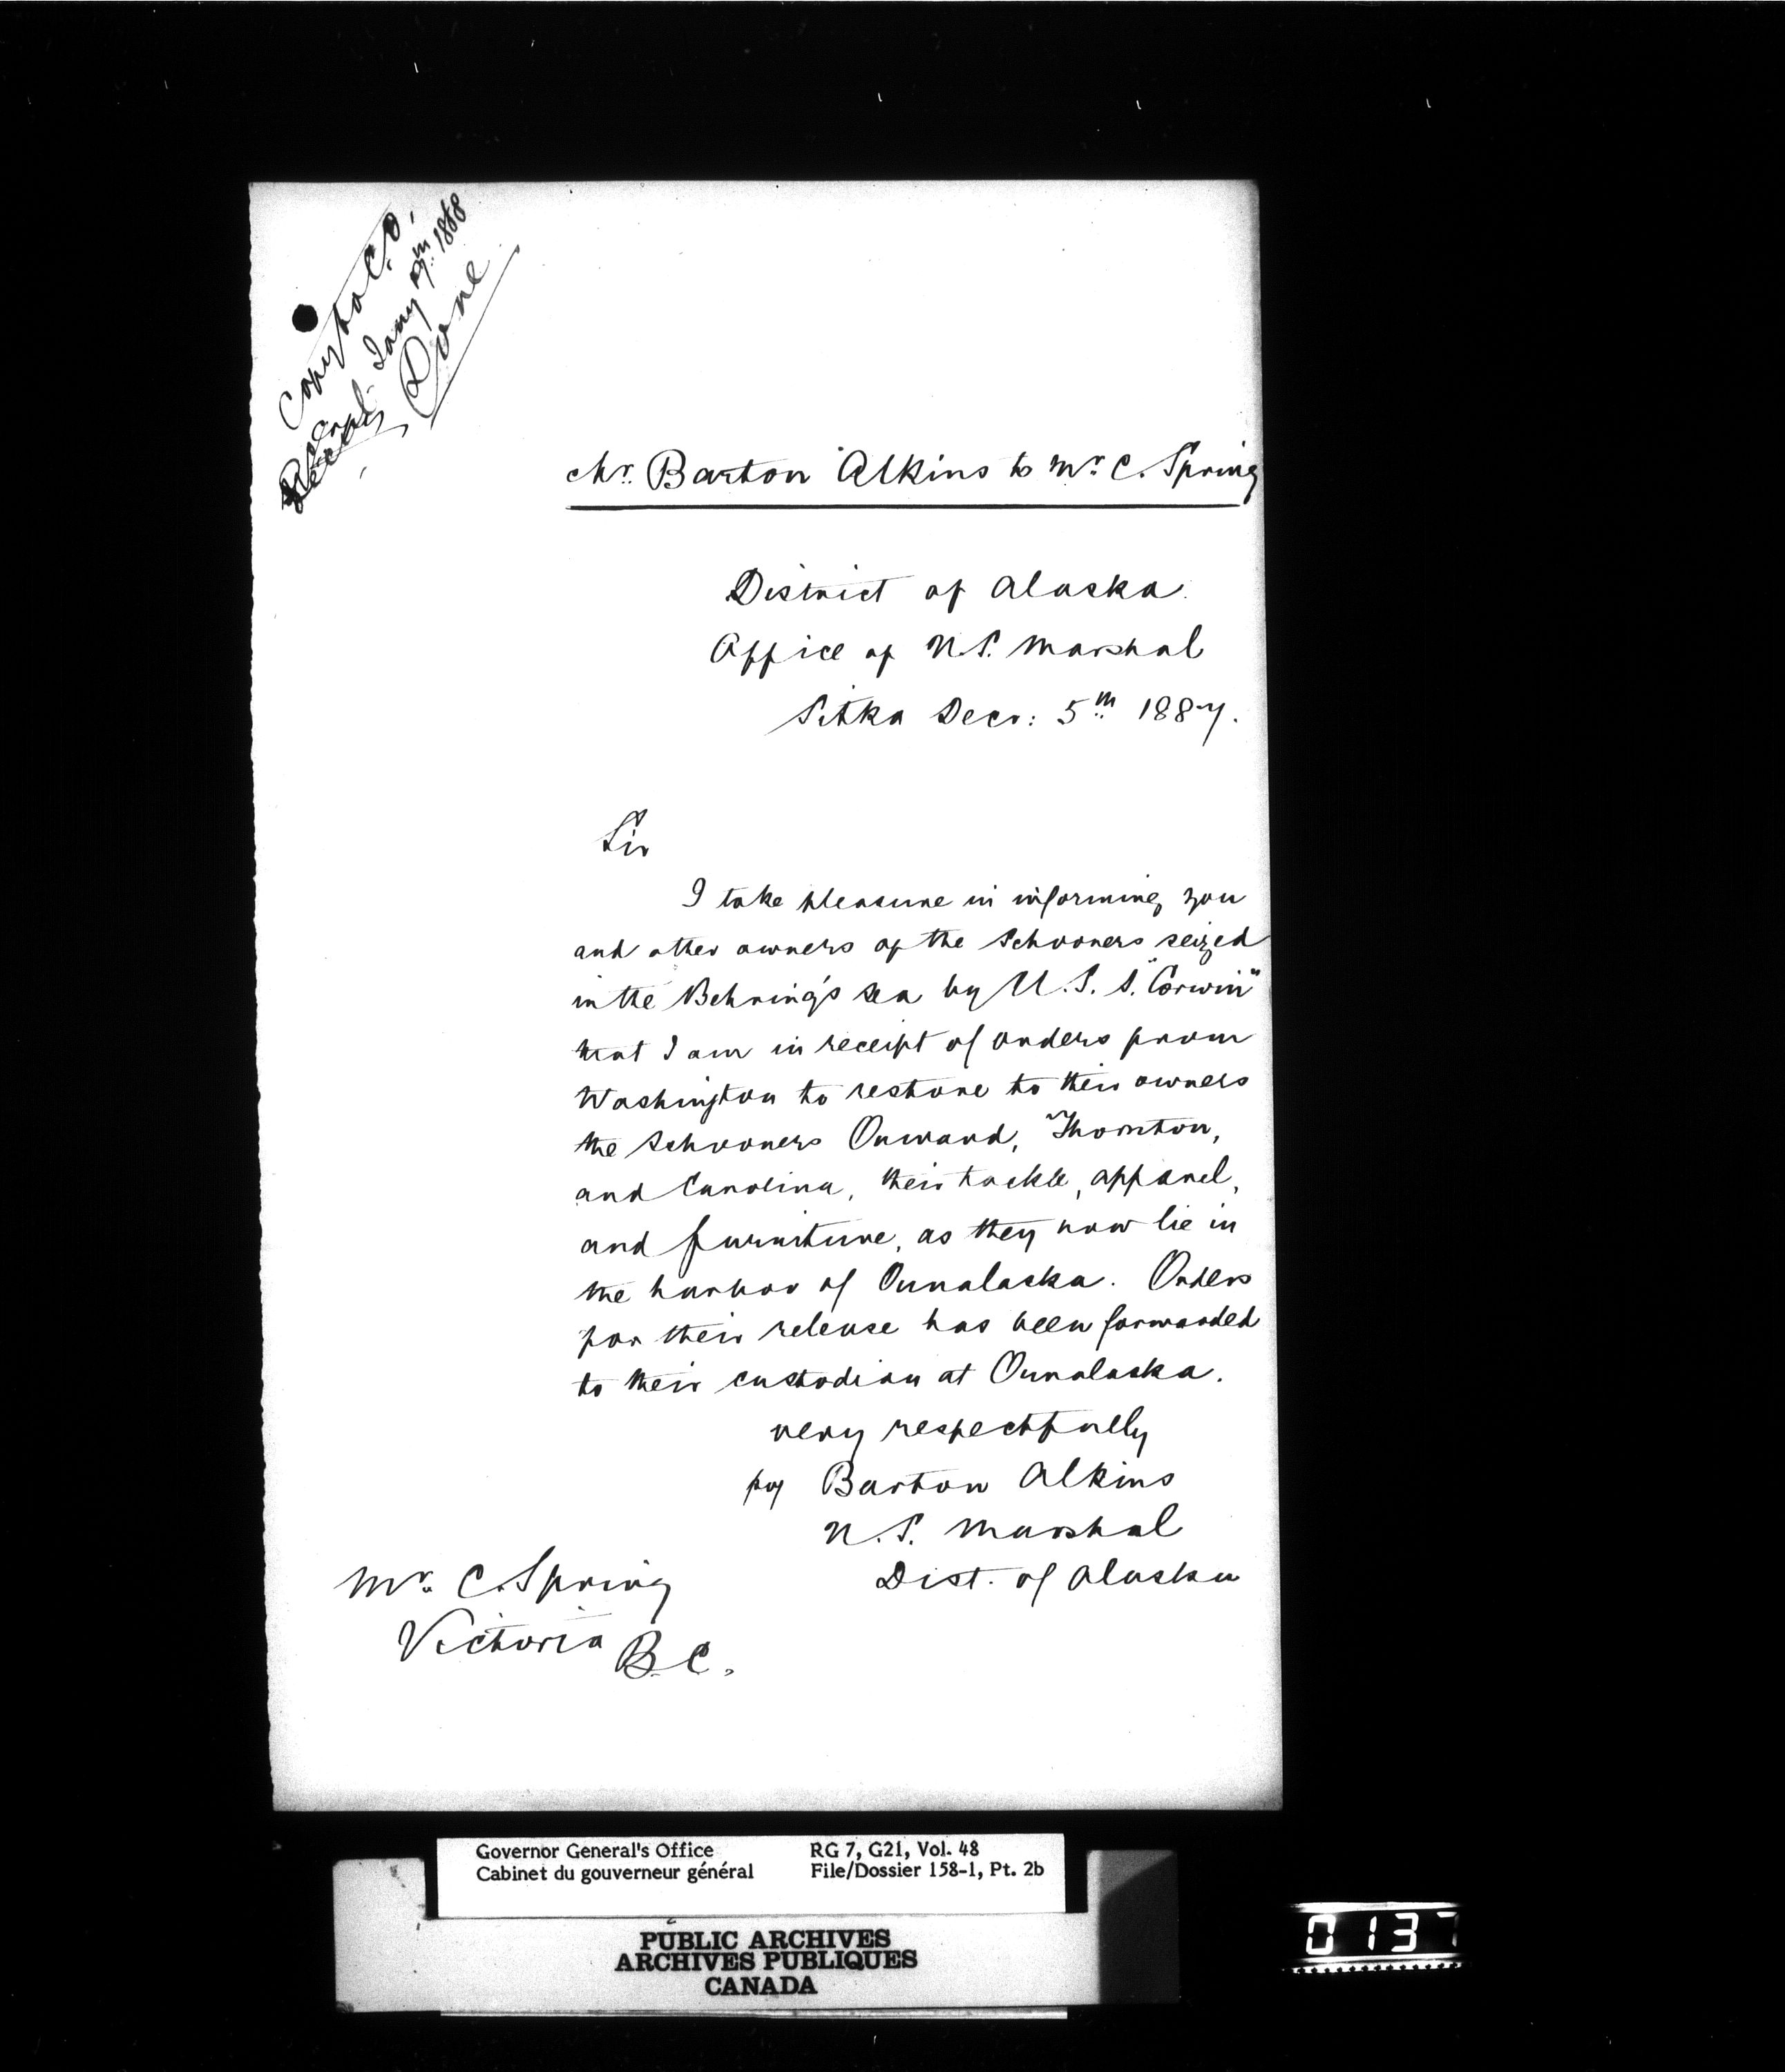 Copy to C.O.
Janʸ 9ᵗʰ 1888
Done
Mr. Barton Atkins to Mr. C. Spring
District of Alaska.
Office of U.S. Marshal
Sitka Decr: 5th 1887.
Sir
I take pleasure in informing you
and other owners of the Schooners seized
in the Behring's sea by U.S.S. "Corwin"
that I am in receipt of orders from
Washington to restore to their owners
the Schooners Onward, Thornton,
and Carolina, their tackle, apparel,
and furniture, as they now lie in
the harbor of Ounalaska. Orders
for their release has been forwarded
to their custodian at Ounalaska.
very respectfully
Barton Atkins
U.S. Marshal
Dist. of Alaska
Mr. C. Spring
Victoria B.C.
Governor General's Office RG 7, G21, Vol. 48
Cabinet du gouverneur général File/Dossier 158-1, Pt. 2b
PUBLIC ARCHIVES
ARCHIVES PUBLIQUES
CANADA
0137